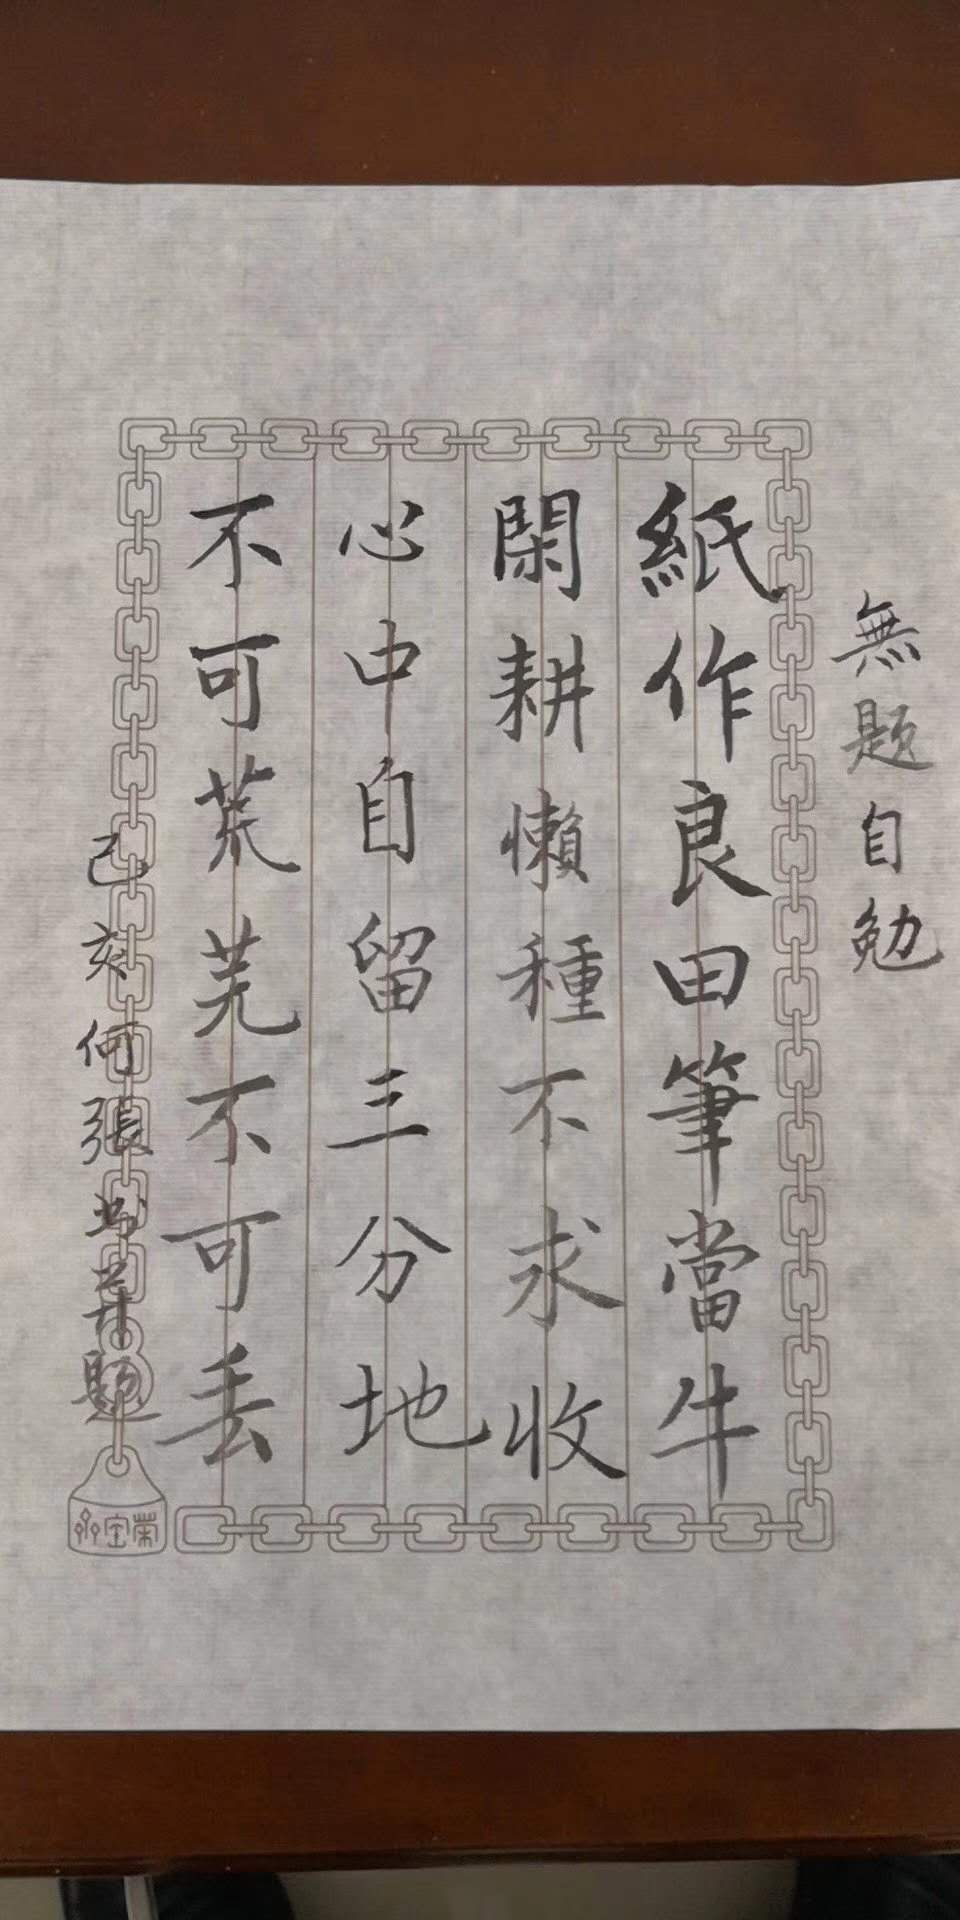 無題自勉
紙作良田筆當牛
閑耕懶種不求收
心中自留三分地
不可荒芜不可丢
己亥 何張 題
榮宝